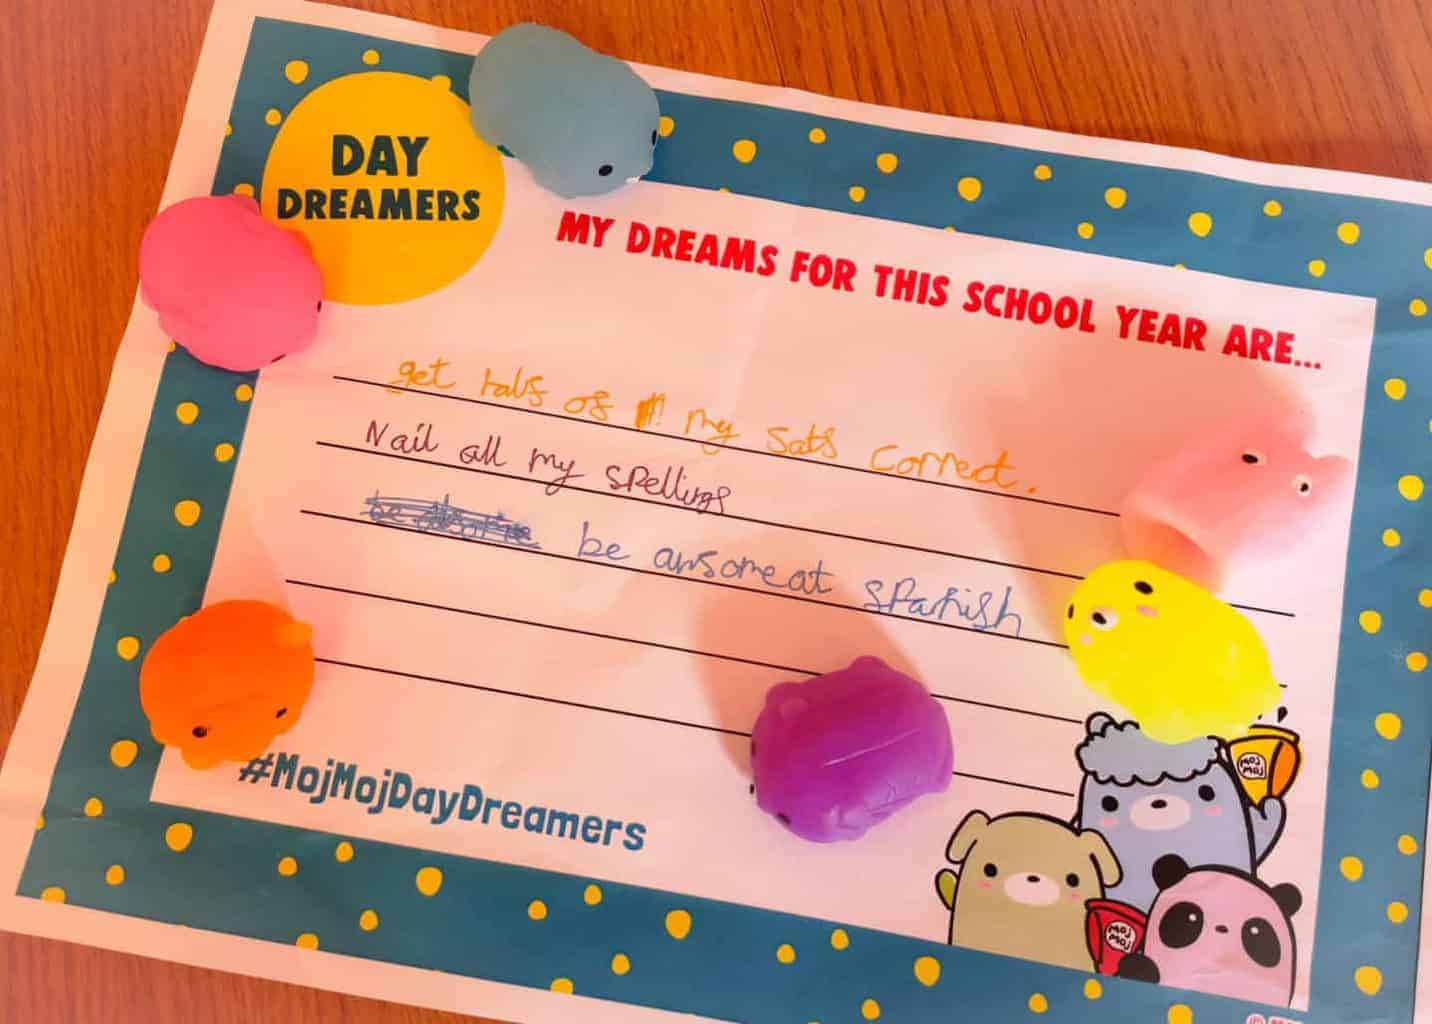 DAY
DREAMERS
MY DREAMS FOR THIS SCHOOL YEAR ARE...
get of my sats correct.
Nail all my spellings
be awsome at spanish
#MojMojDayDreamers
MOJ
MOJ
MOJ
MOJ